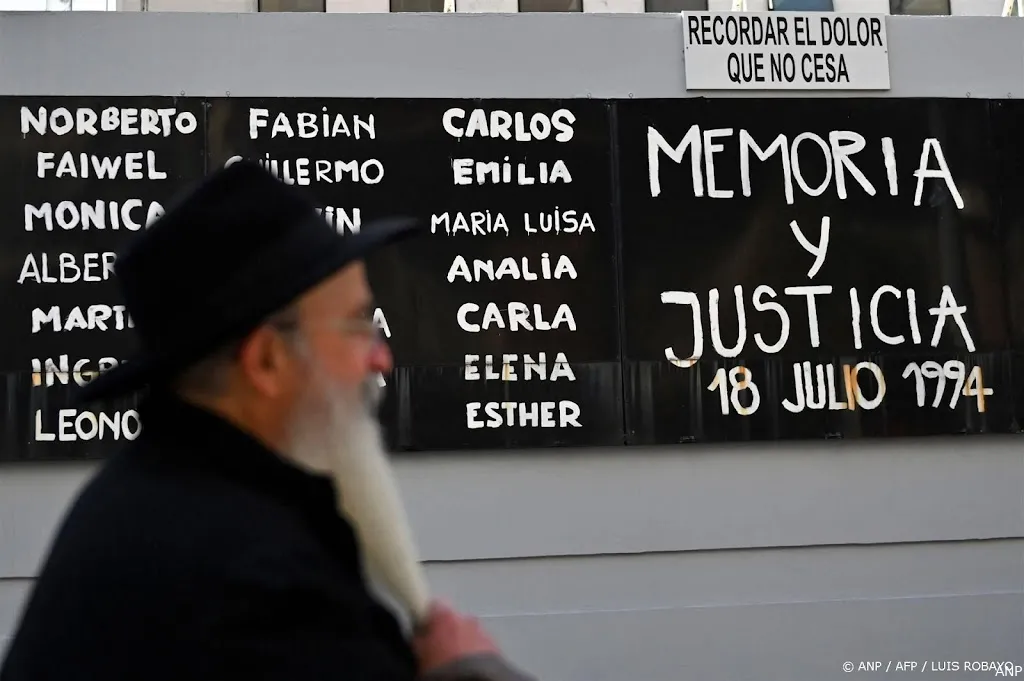 RECORDAR EL DOLOR
QUE NO CESA
NORBERTO
FAIWEL
MONICA
MARTI
LEONO
FABIÁN
CARLOS
EMILIA
MARIA LUISA
ANALIA
CARLA
ELENA
ESTHER
MEMORIA
Y
JUSTICIA
18 JULIO 1994
© ANP / AFP / LUIS ROBAYO
ANP